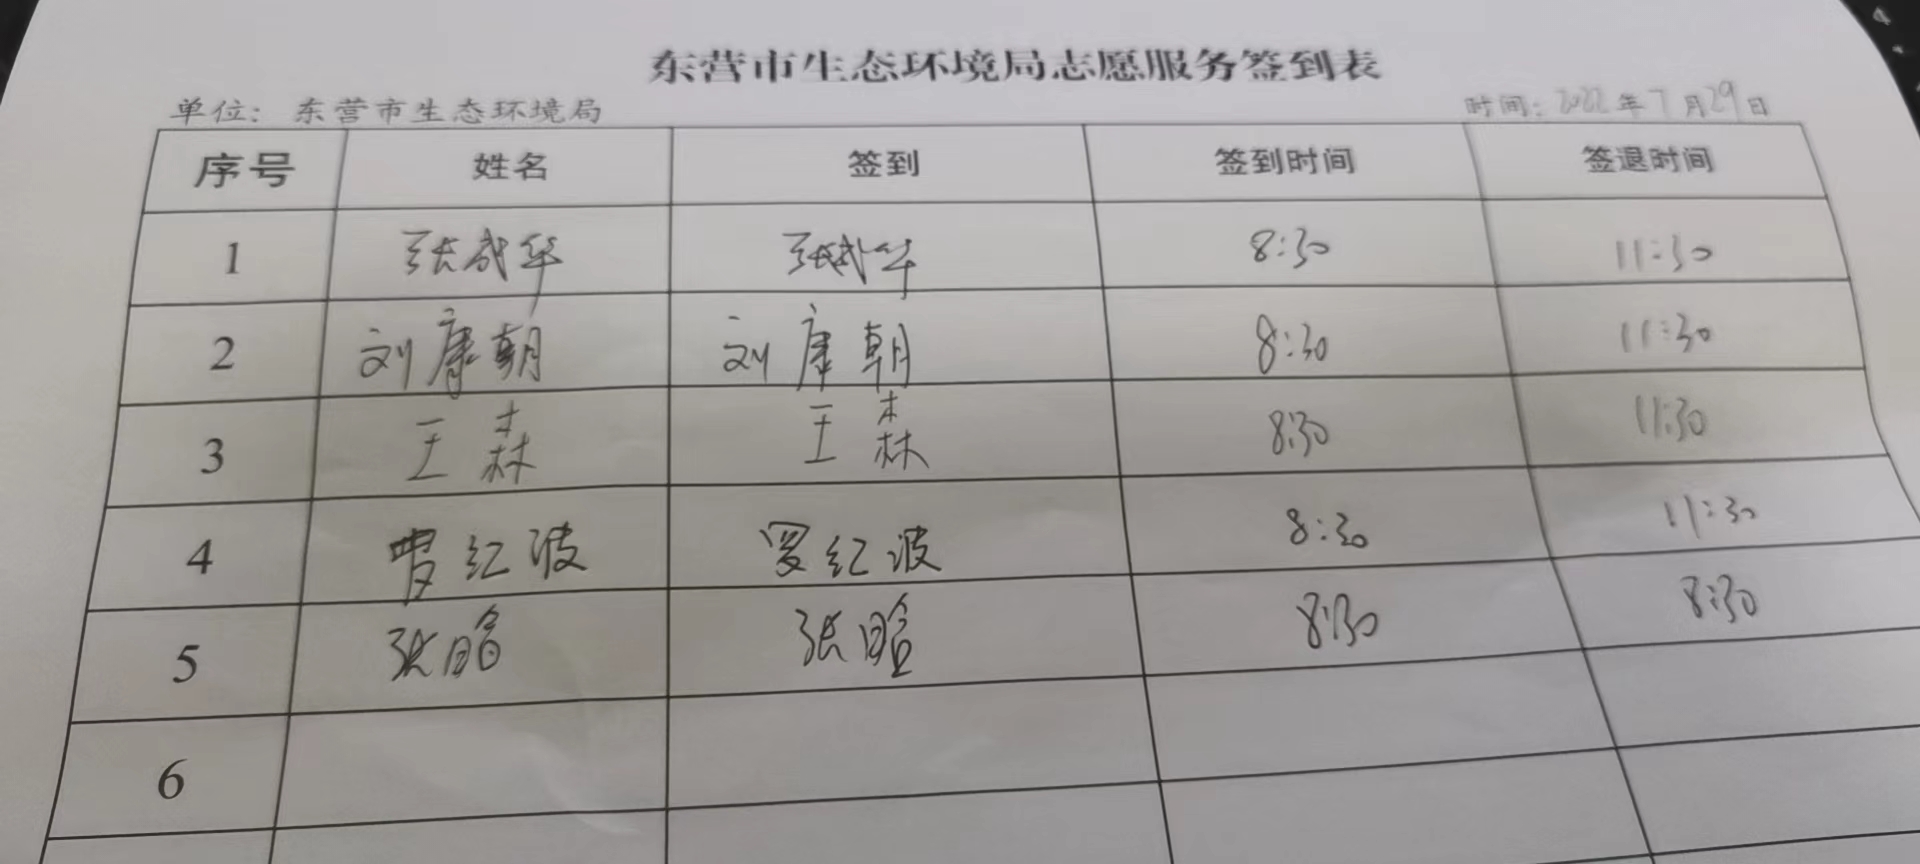 东营市生态环境局志愿服务签到表
单位：东营市生态环境局 时间：2022年7月29日
序号 姓名 签到 签到时间 签退时间
1 张成华 张成华 8:30 11:30
2 刘康朝 刘康朝 8:30 11:30
3 王森 王森 8:30 11:30
4 罗红波 罗红波 8:30 11:30
5 张 张 8:30 8:30
6